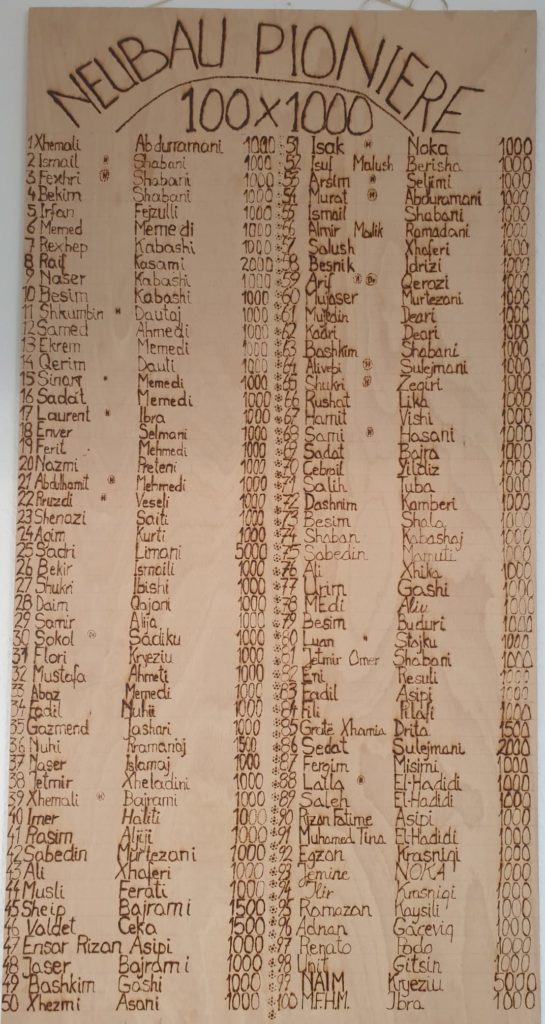 NEUBAU PIONIERE
100x1000
1 Xhemali Abdurramani 1000
2 Ismail Shabani 1000
3 Fexhri Shabani 1000
4 Bekim Shabani 1000
5 Irfan Fejzulli 1000
6 Memed Memedi 1000
7 Rexhep Kabashi 1000
8 Raif Kasami 2000
9 Naser Kabashi 1000
10 Besim Kabashi 1000
11 Shkumbin Dautaj 1000
12 Samed Ahmedi 1000
13 Ekrem Memedi 1000
14 Qerim Dauti 1000
15 Sinan Memedi 1000
16 Sadat Memedi 1000
17 Laurent Ibra 1000
18 Enver Selmani 1000
19 Ferit Mehmedi 1000
20 Nazmi Preteni 1000
21 Abdulhamit Mehmedi 1000
22 Rruzdi Veseli 1000
23 Shenazi Saiti 1000
24 Agim Kurti 1000
25 Sadri Limani 5000
26 Bekir Ismaili 1000
27 Shukri Ibishi 1000
28 Daim Qajani 1000
29 Samir Alija 1000
30 Sokol Sadiku 1000
31 Flori Kryeziu 1000
32 Mustafa Ahmeti 1000
33 Abaz Memedi 1000
34 Fadil Nuhii 1000
35 Gazmend Jashari 1000
36 Nuhi Kramanaj 1500
37 Naser Islamaj 1000
38 Jetmir Xheladini 1000
39 Xhemali Bajrami 1000
40 Imer Haliti 1000
41 Rasim Aljiji 1000
42 Sabedin Murtezani 1000
43 Ali Xhaferi 1000
44 Musli Ferati 1000
45 Sheip Bajrami 1500
46 Valdet Ceka 1500
47 Ensar Rizan Asipi 1000
48 Jaser Bajrami 1000
49 Bashkim Gashi 1000
50 Xhezmi Asani 1000
51 Isak Noka 1000
52 Isuf Malush Berisha 1000
53 Arsim Selimi 1000
54 Murat Abduramani 1000
55 Ismail Shabani 1000
56 Almir Malik Ramadani 1000
57 Salush Xhaferi 1000
58 Besnik Idrizi 1000
59 Arif Qerazi 1000
60 Mujaser Murtezani 1000
61 Deari 1000
62 Kadri Deari 1000
63 Bashkim Shabani 1000
64 Alivebi Sulejmani 1000
65 Shukri Zegiri 1000
66 Rushat Lika 1000
67 Hamit Vishi 1000
68 Sami Hasani 1000
69 Sadat Bajra 1000
70 Cebrail Yildiz 1000
71 Salih Juba 1000
72 Dashnim Kamberi 1000
73 Besim Shala 1000
74 Shaban Kabashaj 1000
75 Sabedin Mamuti 1000
76 Ali Xhika 1000
77 Urim Gashi 1000
78 Medi Aliu 1000
79 Besim Buduri 1000
80 Luan Stojku 1000
81 Jetmir Omer Shabani 1000
82 Eni Resuli 1000
83 Fadil Asipi 1000
84 Fili Pilafi 1000
85 Gratë Xhamia Drita 1500
86 Sedat Sulejmani 2000
87 Fergim Misimi 1000
88 Laila El-Hadidi 1000
89 Saleh El-Hadidi 1000
90 Rizan Fatime Asipi 1000
91 Muhamed Tina El-Hadidi 1000
92 Egzon Krasniqi 1000
93 Jemine NOKA 1000
94 Ilir Krasniqi 1000
95 Ramazan Kaysili 1000
96 Adnan 1000
97 Renato Dodo 1000
98 Unit Gitsin 1000
99 NAIM Kryeziu 5000
100 M.F.H.M. Ibra 1000